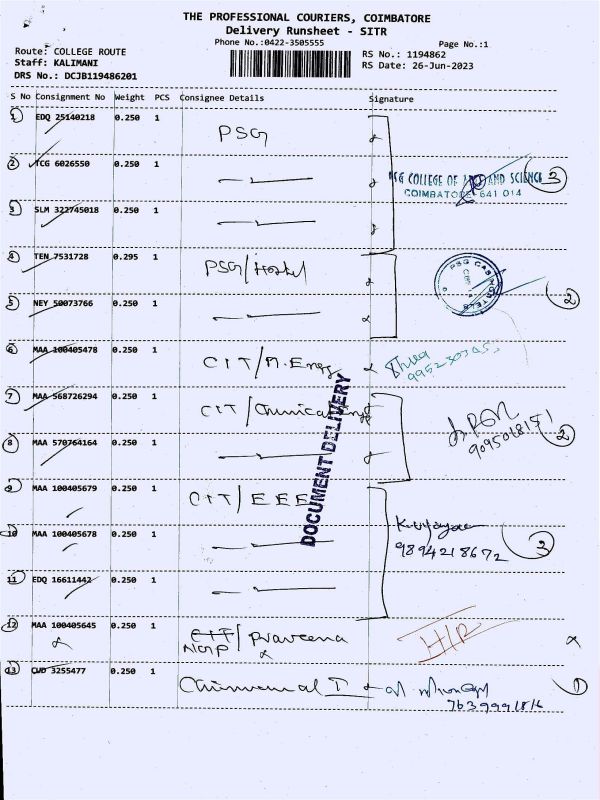 THE PROFESSIONAL COURIERS, COIMBATORE
Delivery Runsheet - SITR
Phone No.:0422-3505555
Page No.:1
Route: COLLEGE ROUTE
RS No.: 1194862
Staff: KALIMANI
RS Date: 26-Jun-2023
DRS No.: DCJB119486201
S No Consignment No Weight PCS Consignee Details Signature
1 EDQ 25140218 0.250 1 PSG
2 TCG 6026550 0.250 1
PSG COLLEGE OF ARTS AND SCIENCE 3
COIMBATORE 641 014
3 SLM 322745018 0.250 1
4 TEN 7531728 0.295 1 PSG/Hostel
5 NEY 50073766 0.250 1 2
6 MAA 100405478 0.250 1 CIT/M.Engg
7 MAA 568726294 0.250 1 CIT/
9095018151 2
8 MAA 570764164 0.250 1
DOCUMENT DELIVERY
9 MAA 100405679 0.250 1 CIT/EEE
10 MAA 100405678 0.250 1
9894218672 3
11 EDQ 16611442 0.250 1
12 MAA 100405645 0.250 1 CIT/Praveena H/R
13 CWD 3255477 0.250 1 1